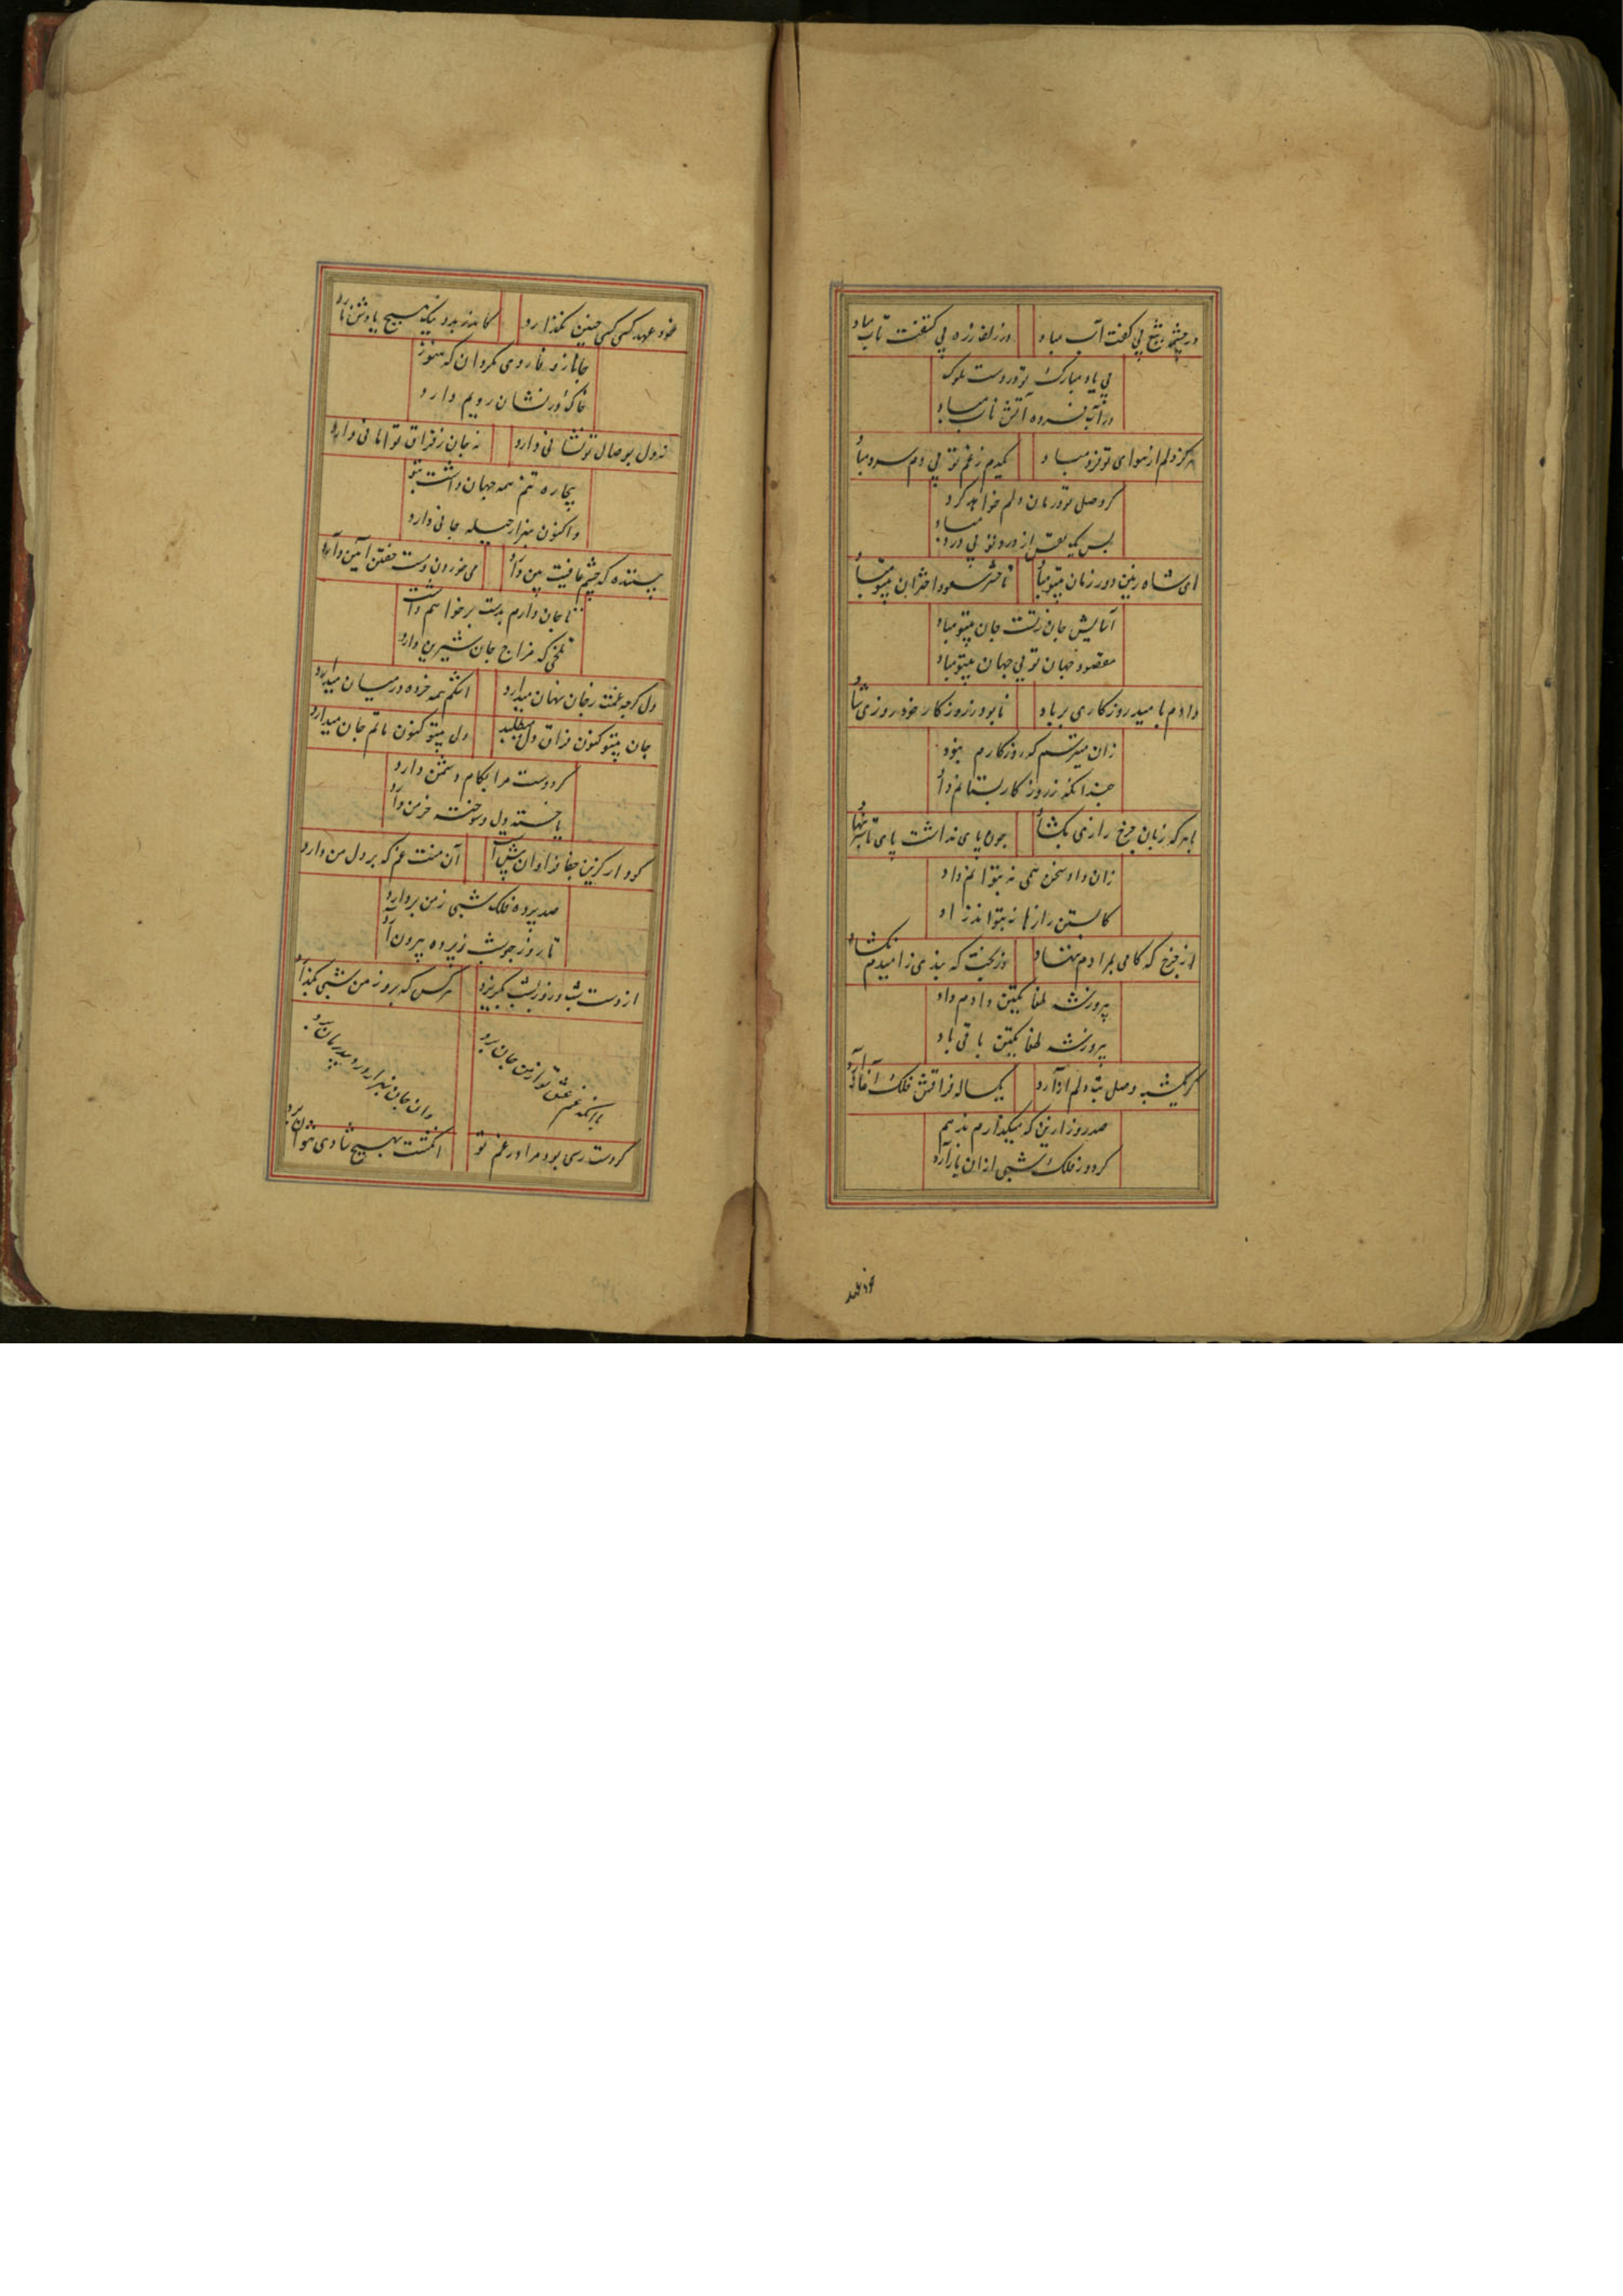 در چشمه تیغ بی کفت آب مباد
در زلف زره بی کنفت تاب مباد
بی یاد مبارک تو در دست ملوک
در آب فسرده آتش ناب مباد
هرگز دلم از هوای تو فرد مباد
یکدم زغم تو بی دم سرد مباد
گر وصل تو درمان دلم خواهد کرد
پس یک نفس از درد تو بی درد مباد
ای شاه زمین دور زمان بیتو مباد
تا حشر سعود اختران بیتو مباد
آسایش جان زتست جان بیتو مباد
مقصود جهان توئی جهان بیتو مباد
دادم بامید روزگاری بر باد
نابوده ز روزکار خود روزی شاد
زان میترسم که روزکارم نبود
چندانکه ز روزکار بستانم داد
با هر که زبان چرخ رازی بکشاد
چون پای نداشت پای
زان داد سخن همی نه بتوانم داد
کابستن رازها نه بتواند زاد
از چرخ که کامی بمرادم ننهاد
وز بخت که بندی ز امیدم نکشاد
پیروزشه طغا تکین دادم داد
پیروزشه طغا تکین باقی باد
گر یکشبه وصل بت دلم ازآرد
یکساله فراقش فلک آغازآرد
صد روز ازین که میکذارم بدهم
گر دور فلک شبی ازان بازآرد
خود عهد کسی کسی چنین بگذارد
کاندر بد و نیک هیچ یادش نارد
جانا ز وفا روی مگردان که هنوز
خاک در تو نشان رویم دارد
نه دل بوصال تو نشانی دارد
نه جان ز فراق تو امانی دارد
بیچاره تنم همه جهان داشت بتو
و اکنون بهزار حیله جانی دارد
بیننده که چشم عافیت بین دارد
می خوردن و مست خفتن آیین دارد
تا جان دارم بدست برخواهم داشت
تلخی که مزاج جان شیرین دارد
دل گرچه غمت زجان نهان میدارد
اشکم همه خرده در میان میدارد
جان بیتو کنون فراق دل میطلبد
دل بیتو کنون ماتم جان میدارد
گر دوست مرا بکام دشمن دارد
یا خسته دل و سوخته خرمن دارد
کو دار کزین جفا فراوان پیش است
آن منت غم که بر دل من دارد
صد پرده فلک شبی زمن بردارد
تا روز چو شب ز پرده بیرون آرد
از دست شب و روز بشب بگریزد
هرکس که بروز من شبی بگذارد
با آنکه غم عشق تو از من جان برد
وان جان بهزار درد بیدرمان برد
گر دست رسی بود مرا در غم تو
انگشت بهیچ شادی نتوان برد
خود عهد